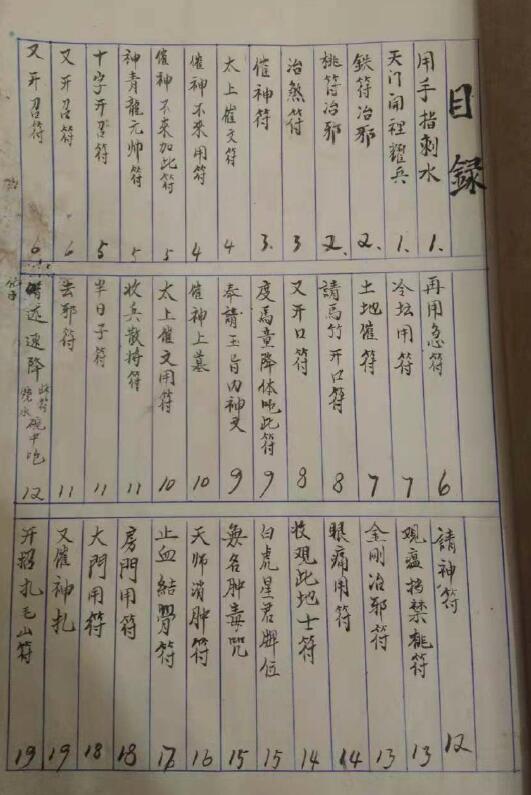 目録
用手指刺水 1.
天门開裡耀兵 1.
鉄符冶邪 2.
桃符冶邪 2.
冶煞符 3
催神符 3.
太上催文符 4
催神不来用符 4
催神不来加此符 5
神青龍元帅符 5
十字开召符 5
又开召符 6
又开召符 6
再用急符 6
冷坛用符 7
土地催符 7
請馬竹开口符 8
又开口符 8
度馬童降体吔此符 9
奉請玉旨内神文 9
催神上墓 10
太上催文用符 10
收兵散将符 11
半日子符 11
去邪符 11
速降 此符燒水碗中吔 12
請神符 12
观瘟挡禁桃符 13
金刚冶邪符 13
眼痛用符 14
收观此地士符 14
白虎星君牌位 15
無名肿毒咒 15
天师消肿符 16
止血結骨符 17
房門用符 18
大門用符 18
又催神扎 19
开招扎毛山符 19